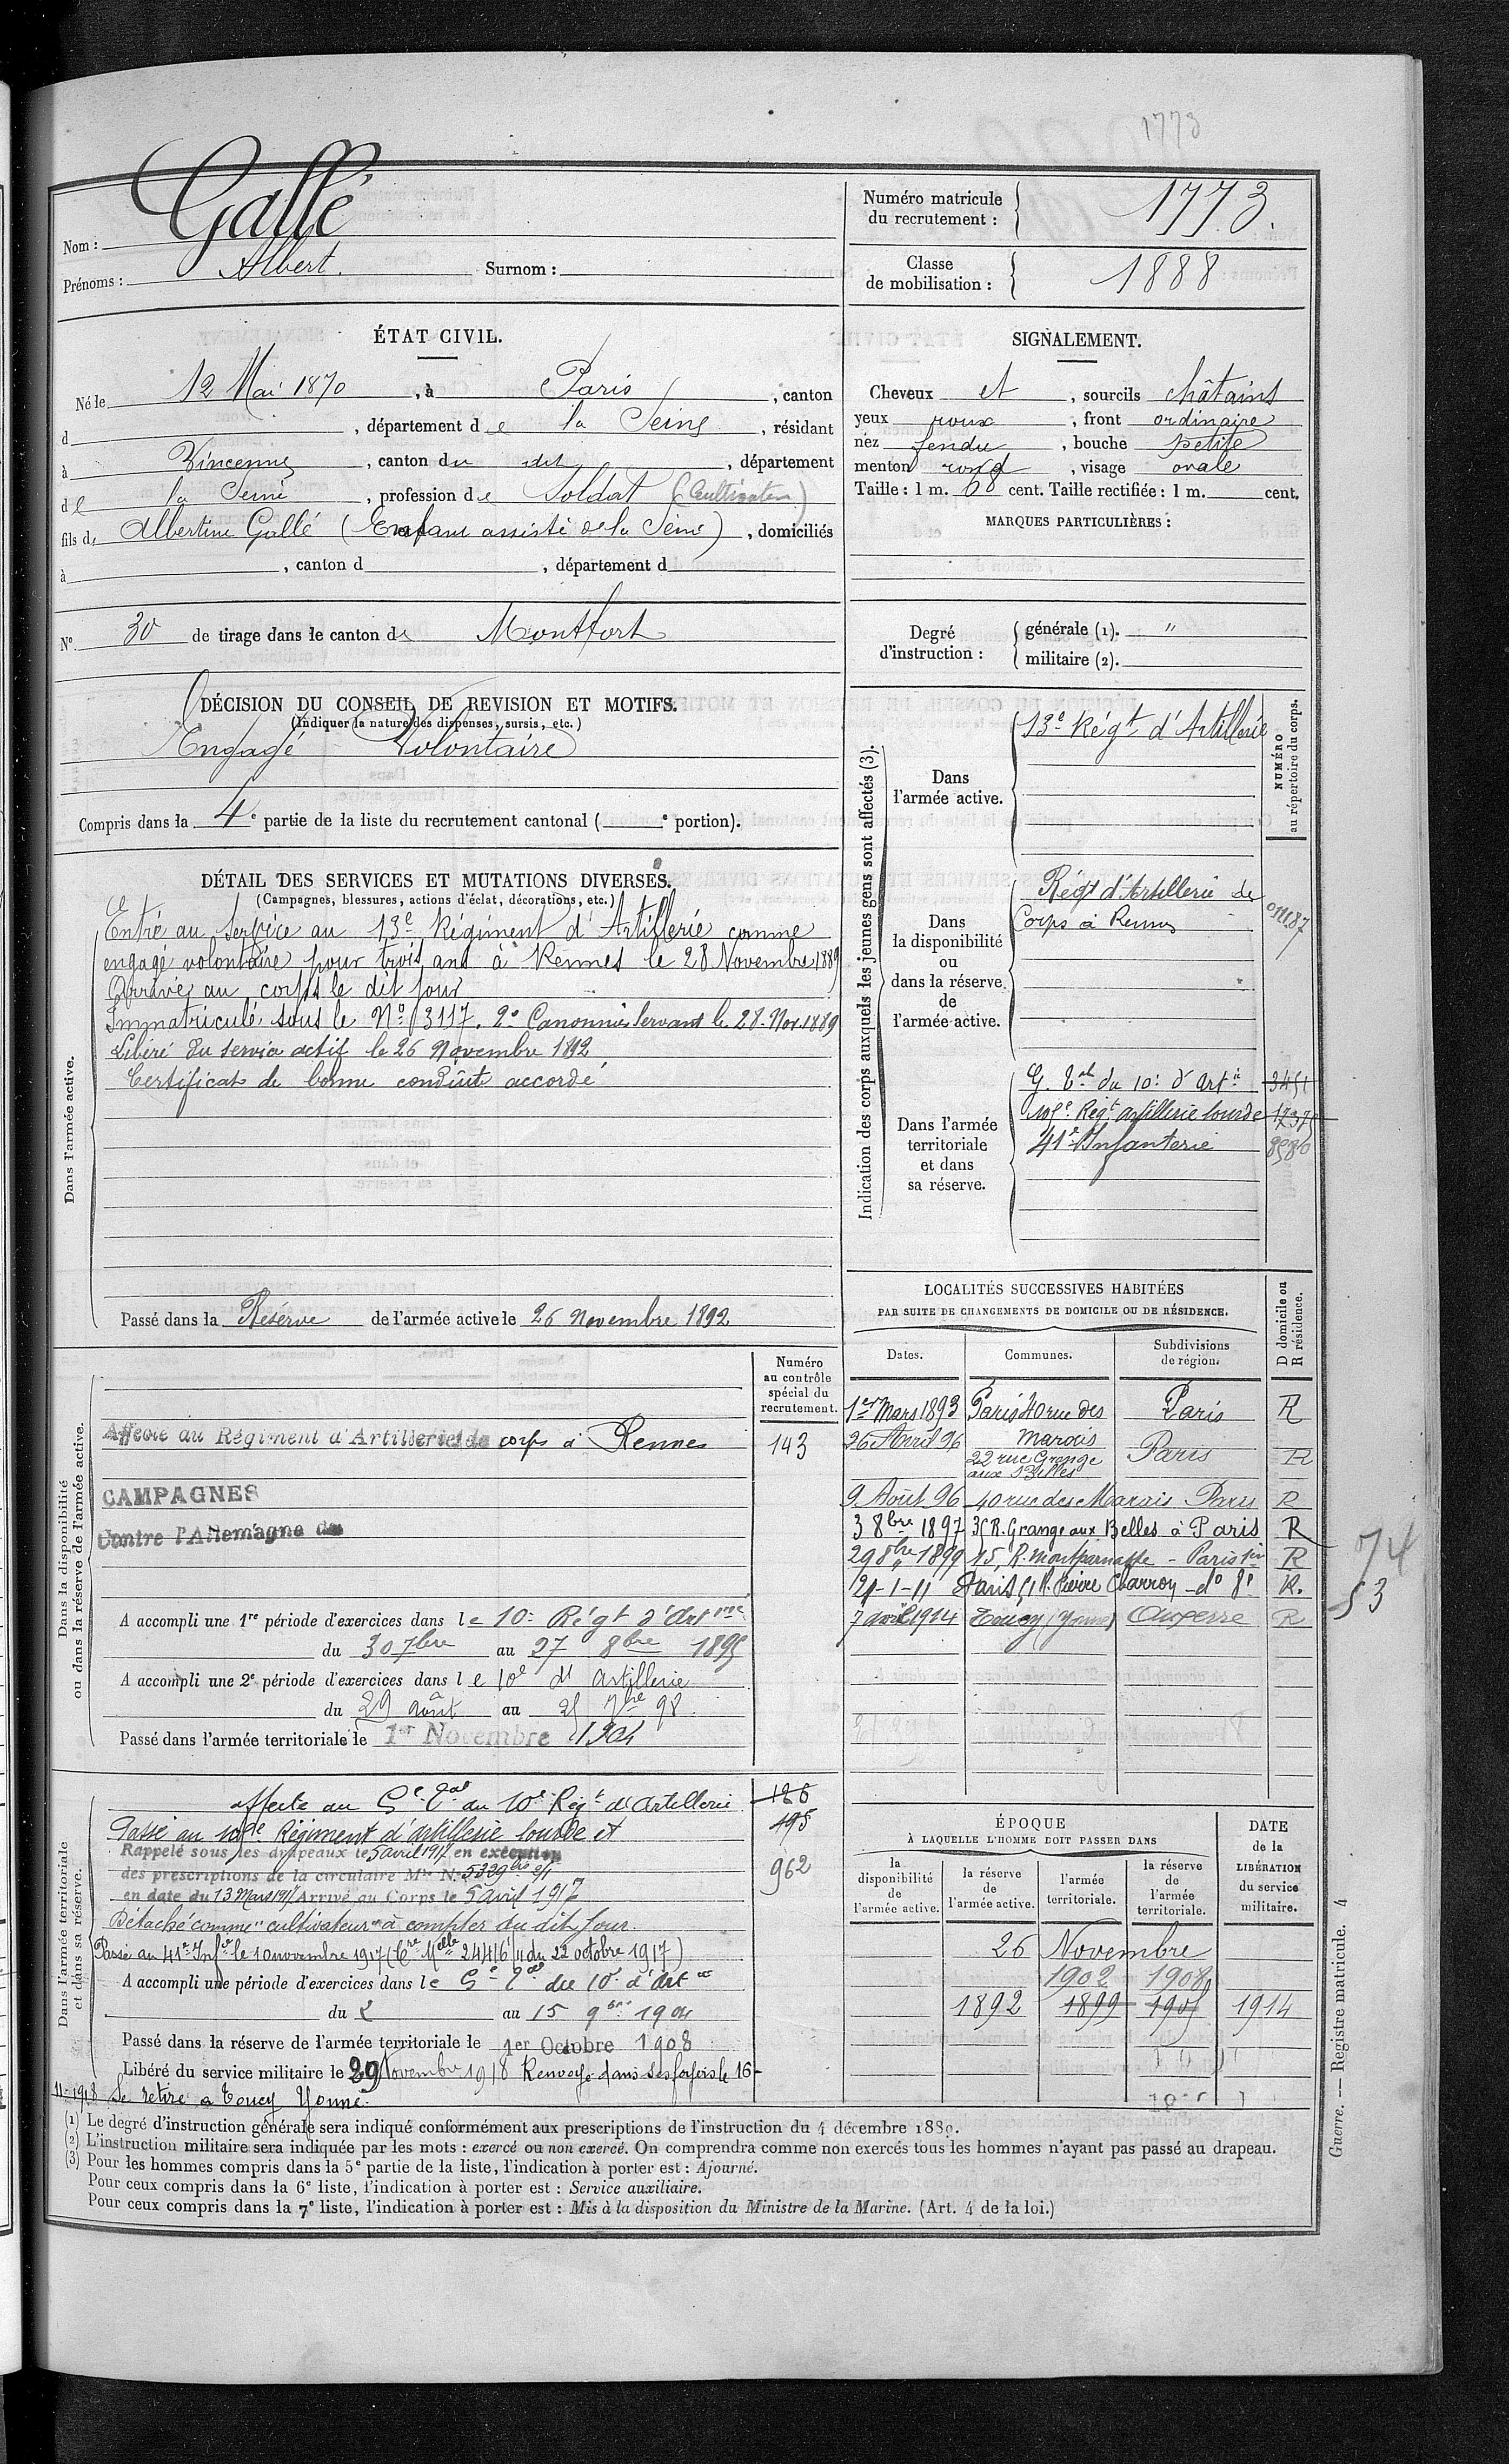 1773
Nom : Gallé
Prénoms : Albert. Surnom :
Numéro matricule du recrutement : 1773.
Classe de mobilisation : 1888
ÉTAT CIVIL.
Né le 12 Mai 1870, à Paris, canton
d , département de la Seine, résidant
à Vincennes, canton du dit, département
de la Seine, profession de Soldat (Cultivateur)
fils de Albertine Gallé (Enfant assisté de la Seine), domiciliés
à , canton d , département d
N° 30 de tirage dans le canton de Montfort
SIGNALEMENT.
Cheveux et, sourcils châtains
yeux roux, front ordinaire
nez fendu, bouche petite
menton rond, visage ovale
Taille : 1 m. 68 cent. Taille rectifiée : 1 m. cent.
MARQUES PARTICULIÈRES :
Degré d'instruction : générale (1). "
militaire (2).
DÉCISION DU CONSEIL DE REVISION ET MOTIFS.
(Indiquer la nature des dispenses, sursis, etc.)
Engagé Volontaire
Compris dans la 4e partie de la liste du recrutement cantonal ( e portion).
DÉTAIL DES SERVICES ET MUTATIONS DIVERSES.
(Campagnes, blessures, actions d'éclat, décorations, etc.)
Dans l'armée active.
Entré au service au 13e Régiment d'Artillerie comme
engagé volontaire pour trois ans à Rennes le 28 Novembre 1889
Arrivé au corps le dit jour
Immatriculé sous le N° 3117. 2e Canonnier servant le 28 Nov. 1889
Libéré du service actif le 26 Novembre 1892
Certificat de bonne conduite accordé
Passé dans la Réserve de l'armée active le 26 Novembre 1892
Indication des corps auxquels les jeunes gens sont affectés (3).
NUMÉRO au répertoire du corps.
Dans l'armée active.
13e Régt d'Artillerie
Dans la disponibilité ou dans la réserve de l'armée active.
Régt d'Artillerie de
Corps à Rennes
Dans l'armée territoriale et dans sa réserve.
G. Tal du 10e d'Artie 3451
Régt artillerie lourde
41e Infanterie 8580
LOCALITÉS SUCCESSIVES HABITÉES
PAR SUITE DE CHANGEMENTS DE DOMICILE OU DE RÉSIDENCE.
Dates. Communes. Subdivisions de région. D domicile ou R résidence.
1er Mars 1893 Paris 40 rue des Marais Paris R
26 Avril 96 22 rue Grange aux Belles Paris R
9 Août 96 40 rue des Marais Paris R
3 8bre 1897 35 R. Grange aux Belles à Paris R
29 8bre 1899 15, R. Montparnasse - Paris R
21-1-11 Paris 51 R. Pierre Charron - do 8e R.
7 avril 1914 Toucy (Yonne) Auxerre R
74
53
Dans la disponibilité ou dans la réserve de l'armée active.
Numéro au contrôle spécial du recrutement.
Affecté au Régiment d'Artillerie de corps à Rennes 143
CAMPAGNES
Contre l'Allemagne du
A accompli une 1re période d'exercices dans le 10e Régt d'Artrie
du 30 7bre au 27 8bre 1895
A accompli une 2e période d'exercices dans le 10e d'Artillerie
du 29 août au 25 7bre 98
Passé dans l'armée territoriale le 1er Novembre 1904
Dans l'armée territoriale et dans sa réserve.
affecté au Ge Tal du 10e Régt d'Artillerie 126
Passé au Régiment d'artillerie lourde et 195
Rappelé sous les drapeaux le 5 avril 1917 en exécution
des prescriptions de la circulaire Mlle N° 5329 962
en date du 13 Mars 1917 Arrivé au Corps le 5 avril 1917
Détaché comme "cultivateur" à compter du dit jour.
Passé au 41e Infie le 10 novembre 1917 (Cre Melle 24416 du 22 octobre 1917)
A accompli une période d'exercices dans le Ge Tal du 10e d'Artie
du 2 au 15 9bre 1904
Passé dans la réserve de l'armée territoriale le 1er Octobre 1908
Libéré du service militaire le 29 Novembre 1918 Renvoyé dans ses foyers le 16-
11-1918 Se retire à Toucy Yonne.
ÉPOQUE
À LAQUELLE L'HOMME DOIT PASSER DANS
la disponibilité de l'armée active. la réserve de l'armée active. l'armée territoriale. la réserve de l'armée territoriale.
DATE de la LIBÉRATION du service militaire.
26 Novembre
1902 1908
1892 1899 1905 1914
(1) Le degré d'instruction générale sera indiqué conformément aux prescriptions de l'instruction du 4 décembre 1889.
(2) L'instruction militaire sera indiquée par les mots : exercé ou non exercé. On comprendra comme non exercés tous les hommes n'ayant pas passé au drapeau.
(3) Pour les hommes compris dans la 5e partie de la liste, l'indication à porter est : Ajourné.
Pour ceux compris dans la 6e liste, l'indication à porter est : Service auxiliaire.
Pour ceux compris dans la 7e liste, l'indication à porter est : Mis à la disposition du Ministre de la Marine. (Art. 4 de la loi.)
Guerre. — Registre matricule. 4